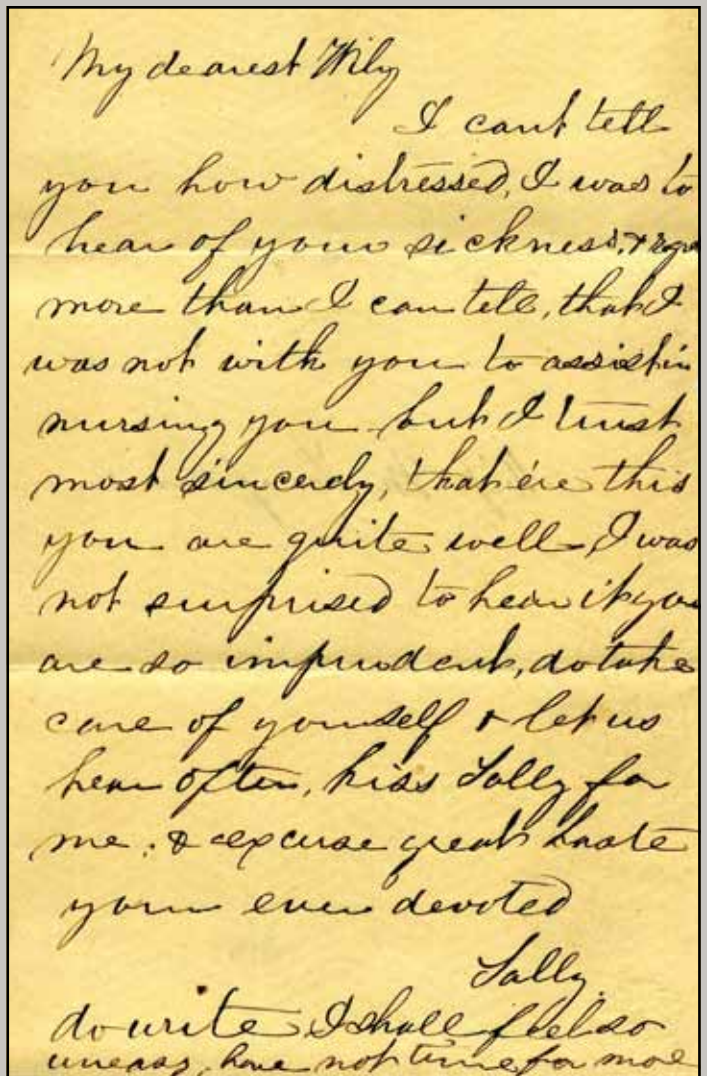 My dearest Wily
I can't tell
you how distressed, I was to
hear of your sickness, &
more than I can tell, that I
was not with you to assist in
nursing you but I trust
most sincerely, that e're this
you are quite well I was
not surprised to hear it you
are so imprudent, do take
care of yourself & let us
hear often, kiss Sally for
me. & excuse great haste
your ever devoted
Sally
do write I shall feel so
uneasy, have not time for more